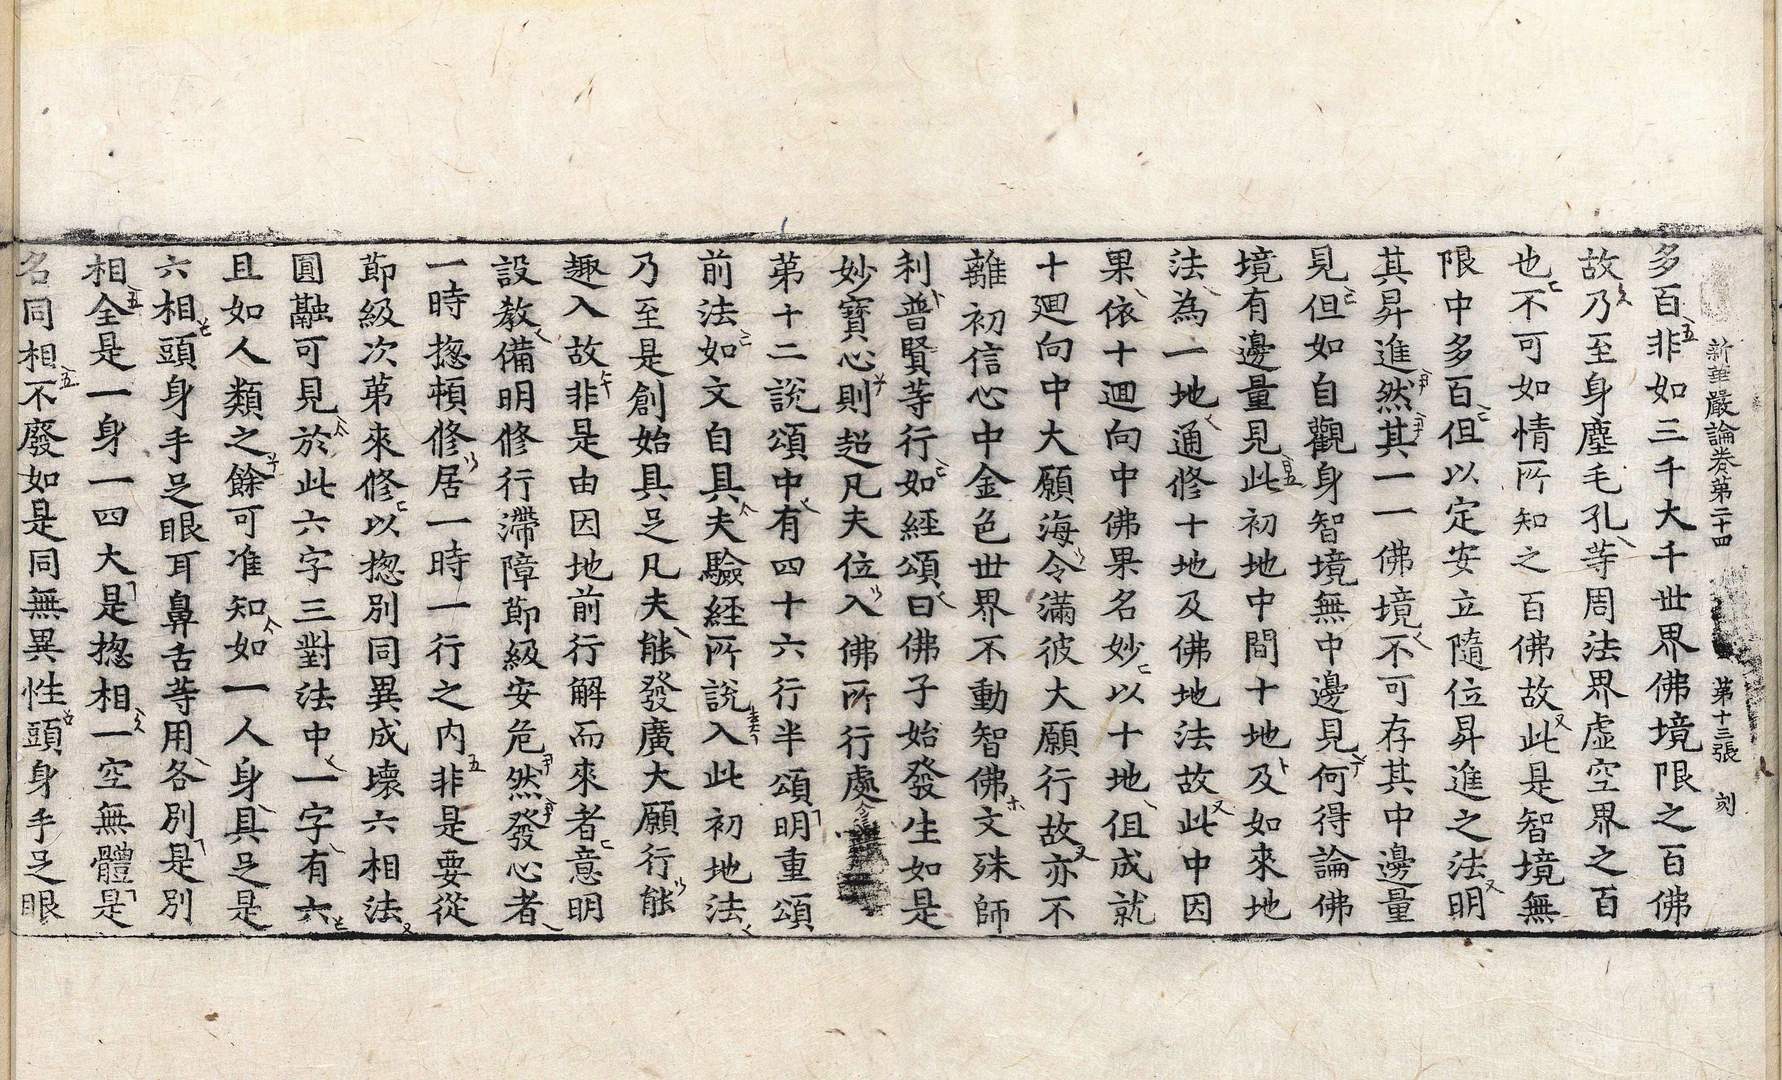 新華嚴論卷第二十四 第十三張 刻
多百非如三千大千世界佛境限之百佛
故乃至身塵毛孔等周法界虛空界之百
也不可如情所知之百佛故此是智境無
限中多百但以定安立隨位昇進之法明
其昇進然其一一佛境不可存其中邊量
見但如自觀身智境無中邊見何得論佛
境有邊量見此初地中間十地及如來地
法為一地通修十地及佛地法故此中因
果依十迴向中佛果名妙以十地但成就
十迴向中大願海令滿彼大願行故亦不
離初信心中金色世界不動智佛文殊師
利普賢等行如經頌曰佛子始發生如是
妙寶心則超凡夫位入佛所行處
第十二說頌中有四十六行半頌明重頌
前法如文自具夫驗経所說入此初地法
乃至是創始具足凡夫能發廣大願行能
趣入故非是由因地前行解而來者意明
設教備明修行滯障節級安危然發心者
一時揔頓修居一時一行之内非是要從
節級次第來修以揔別同異成壞六相法
圓融可見於此六字三對法中一字有六
且如人類之餘可准知如一人身具足是
六相頭身手足眼耳鼻舌等用各別是別
相全是一身一四大是揔相一空無體是
名同相不廢如是同無異性頭身手足眼